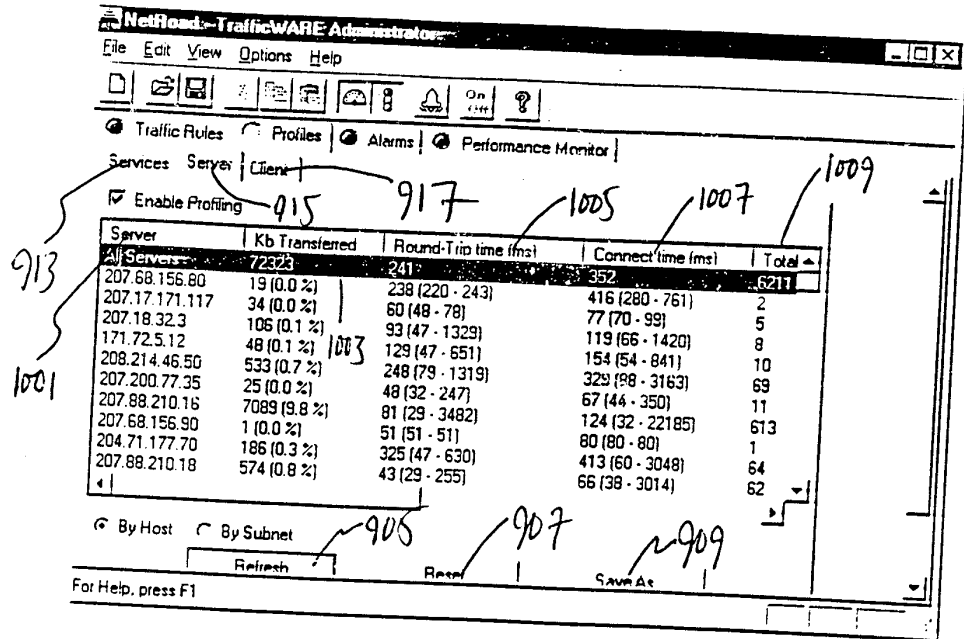 NetRoad - TrafficWARE Administrator
File Edit View Options Help
On Off ?
Traffic Rules Profiles Alarms Performance Monitor
Services Server Client
Enable Profiling
913 915 917 1005 1007 1009
Server Kb Transferred Round-Trip time (ms) Connect time (ms) Total
All Servers 72323 241 352 6211
207.68.156.80 19 (0.0 %) 238 (220 - 243) 416 (280 - 761) 2
207.17.171.117 34 (0.0 %) 60 (48 - 78) 77 (70 - 99) 5
207.18.32.3 106 (0.1 %) 93 (47 - 1329) 119 (66 - 1420) 8
171.72.5.12 48 (0.1 %) 129 (47 - 651) 154 (54 - 841) 10
208.214.46.50 533 (0.7 %) 248 (79 - 1319) 329 (88 - 3163) 69
207.200.77.35 25 (0.0 %) 48 (32 - 247) 67 (44 - 350) 11
207.88.210.16 7089 (9.8 %) 81 (29 - 3482) 124 (32 - 22185) 613
207.68.156.90 1 (0.0 %) 51 (51 - 51) 80 (80 - 80) 1
204.71.177.70 186 (0.3 %) 325 (47 - 630) 413 (60 - 3048) 64
207.88.210.18 574 (0.8 %) 43 (29 - 255) 66 (38 - 3014) 62
1001 1003
By Host By Subnet
905 907 909
Refresh Reset Save As
For Help, press F1